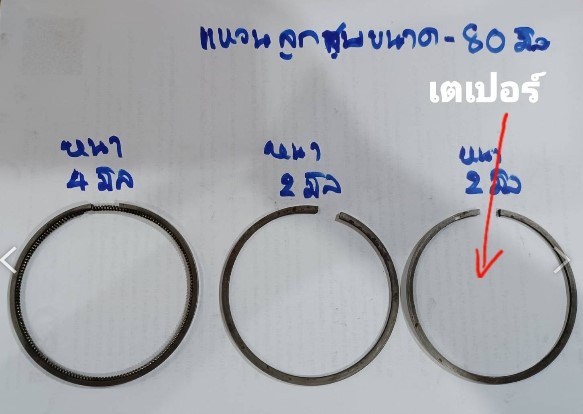 แหวนลูกสูบขนาด-80 มิล
เตเปอร์
หนา
4 มิล
หนา
2 มิล
หนา
2 มิล